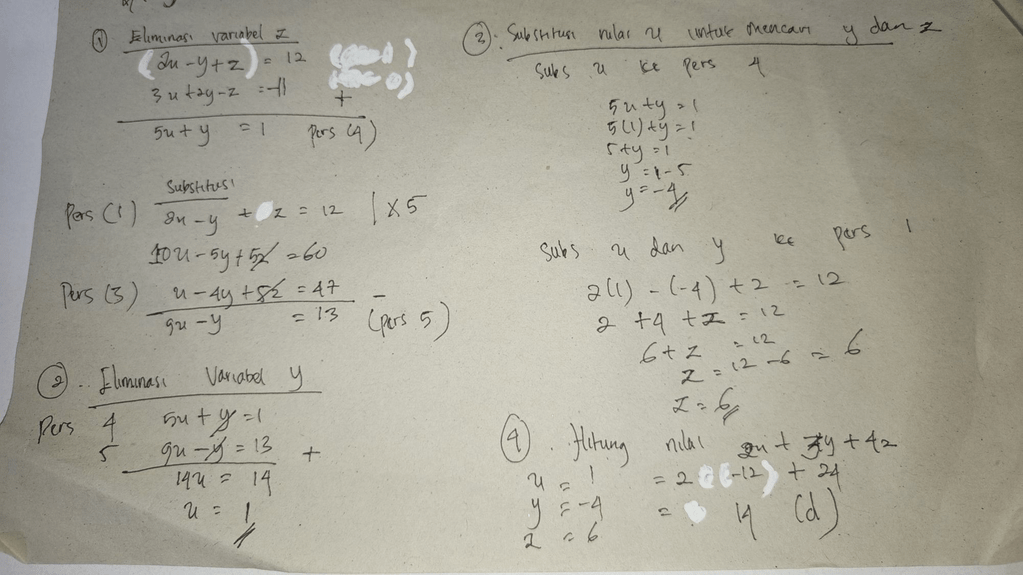 ① Eliminasi variabel z
(2x - y + z) = 12
3x + 2y - z = -11 +
5x + y = 1 Pers (4)
Substitusi
Pers (1) 2x - y + z = 12 | × 5
10x - 5y + 5z = 60
Pers (3) x - 4y + 5z = 47 -
9x - y = 13 (Pers 5)
② Eliminasi Variabel y
Pers 4 5x + y = 1
5 9x - y = 13 +
14x = 14
x = 1
③ Substitusi nilai x untuk mencari y dan z
Subs x ke Pers 4
5x + y = 1
5(1) + y = 1
5 + y = 1
y = 1 - 5
y = -4
Subs x dan y ke pers 1
2(1) - (-4) + z = 12
2 + 4 + z = 12
6 + z = 12
z = 12 - 6 = 6
z = 6
④ Hitung nilai 2x + 3y + 4z
x = 1 = 2 (-12) + 24
y = -4 = 14 (d)
z = 6